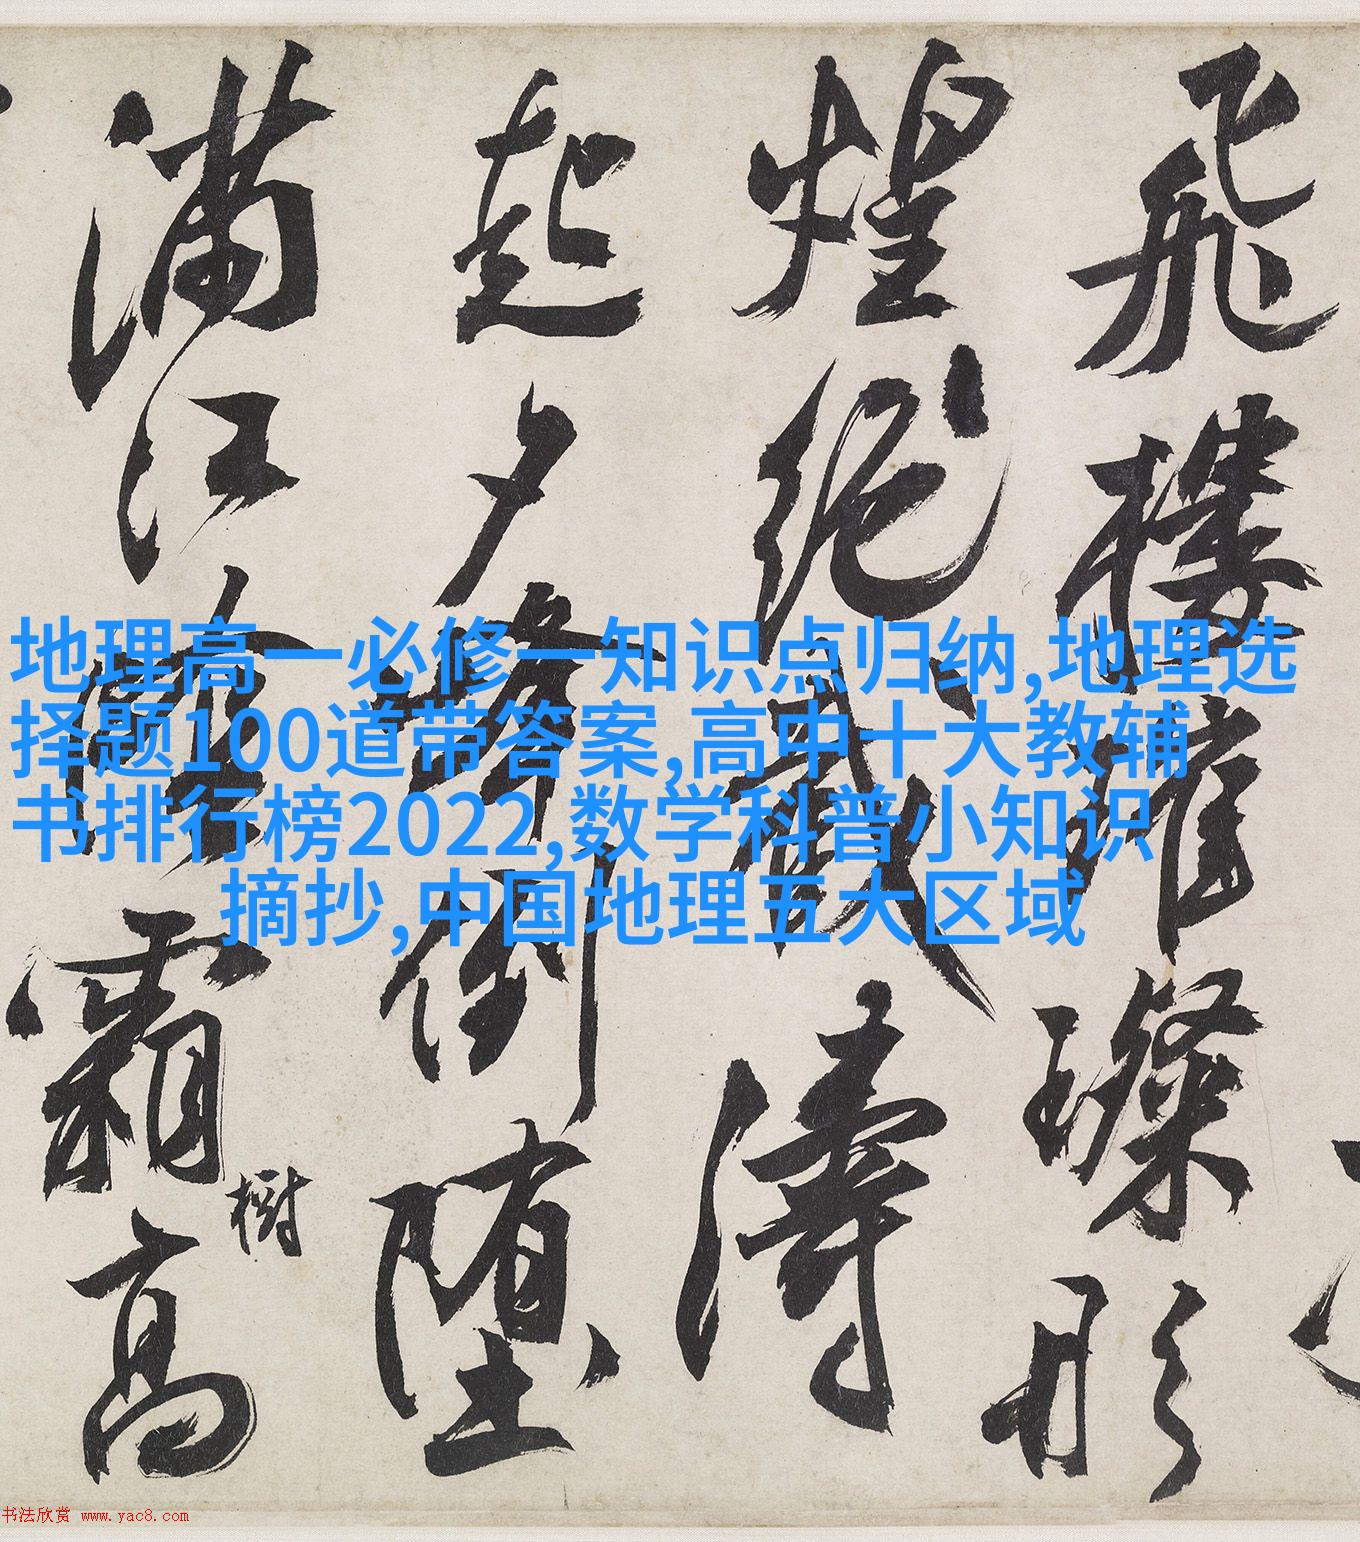 飛樓璀璨形
煌絕濤
起夕倒堕
滿江霜高
樹
地理高一必修一知识点归纳,地理选
择题100道带答案,高中十大教辅
书排行榜2022,数学科普小知识
摘抄,中国地理五大区域
书法欣赏 www.yac8.com